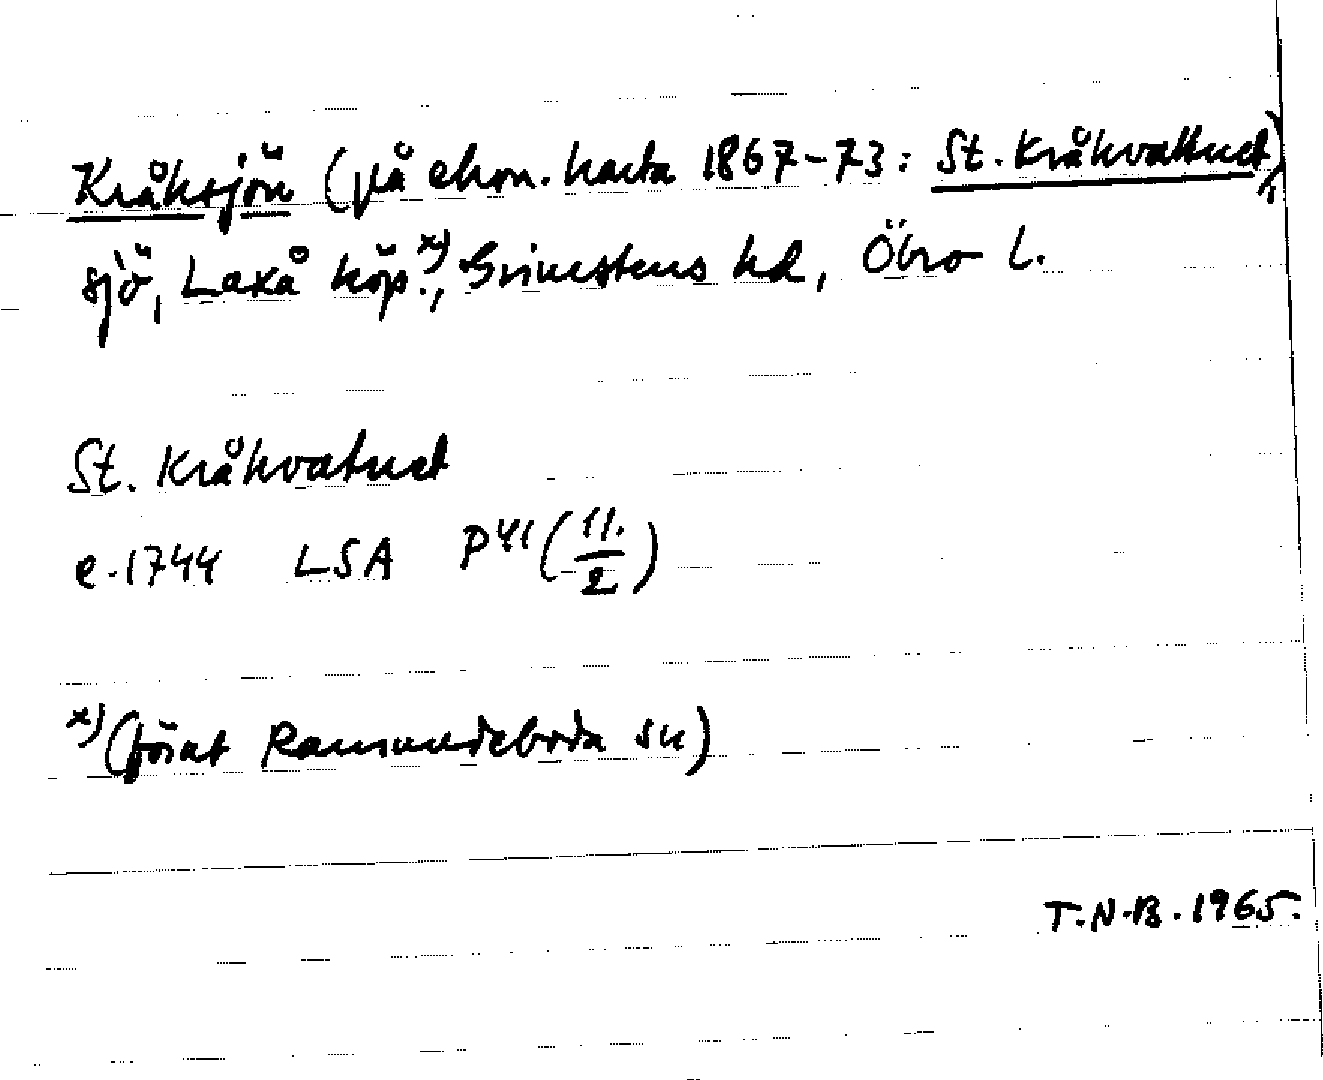 Kråksjön (på ekon. karta 1867-73: St. Kråkvattnet),
sjö, Laxå köp.x), Grimstens hd, Öbro l.
St. Kråkvatnet
e. 1744 LSA P41 (11./2)
x) (förut Ramundeboda sn)
T.N.B. 1965.